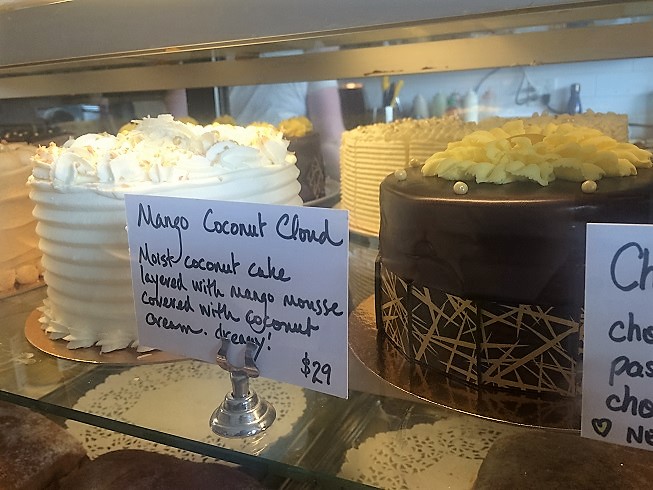 Mango Coconut Cloud
Moist coconut cake
layered with mango mousse
covered with coconut
cream. dreamy!
$29
Ch
cho
pas
cho
♡ Ne